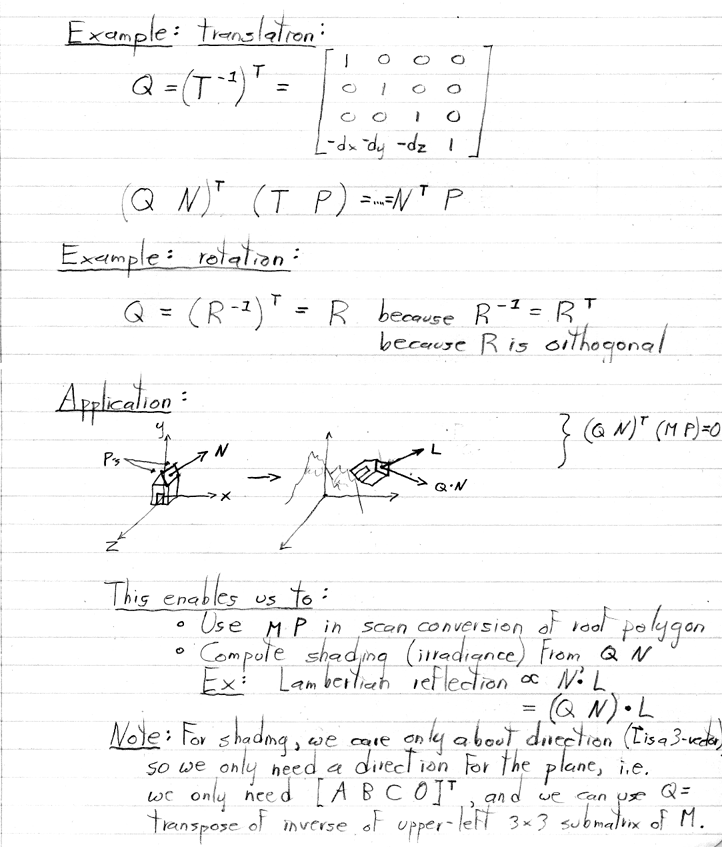 Example: translation:
Q = (T⁻¹)ᵀ = [ 1 0 0 0
0 1 0 0
0 0 1 0
-dx -dy -dz 1 ]
(Q N)ᵀ (T P) =...= Nᵀ P
Example: rotation:
Q = (R⁻¹)ᵀ = R because R⁻¹ = Rᵀ
because R is orthogonal
Application:
} (Q N)ᵀ (M P)=0
y
P's
N
x
z
L
Q·N
This enables us to:
• Use M P in scan conversion of roof polygon
• Compute shading (irradiance) from Q N
Ex: Lambertian reflection ∝ N'·L
= (Q N)·L
Note: For shading, we care only about direction (L is a 3-vector)
so we only need a direction for the plane, i.e.
we only need [A B C 0]ᵀ, and we can use Q=
transpose of inverse of upper-left 3×3 submatrix of M.